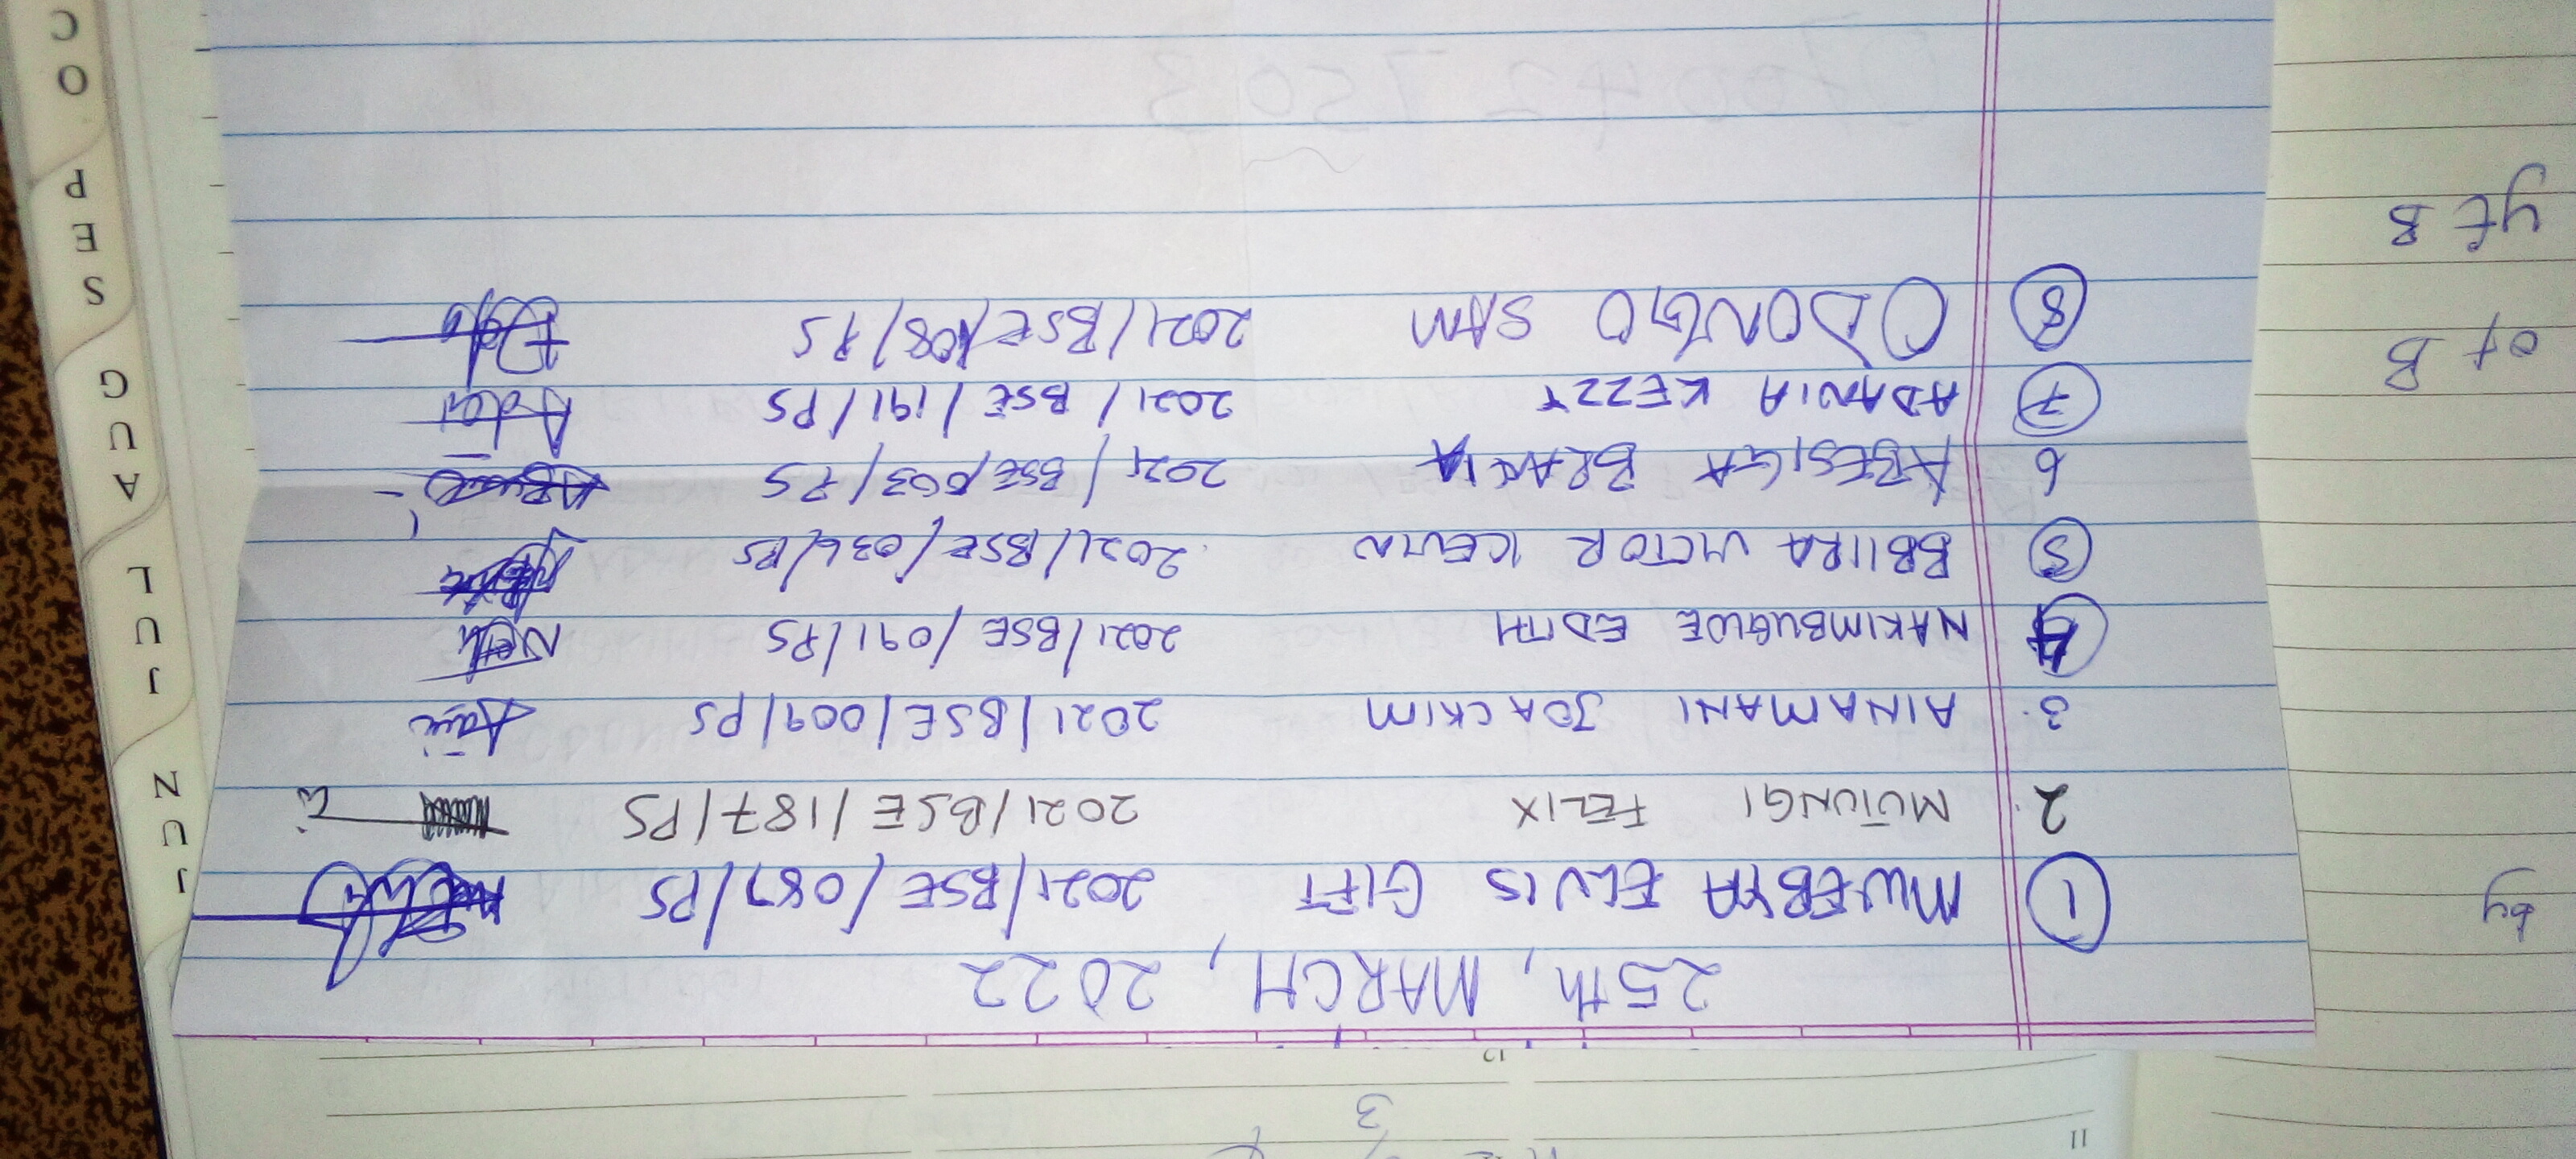 11
3
12
25th, MARCH, 2022
by
1 MWEBYA ELVIS GIFT 2021/BSE/087/PS
2. MUTUNGI FELIX 2021/BSE/187/PS
3. AINAMANI JOACKIM 2021/BSE/009/PS
4 NAKIMBUGWE EDITH 2021/BSE/091/PS
5 BBIIRA VICTOR KEVIN 2021/BSE/036/PS
6 ABESIGA 2021/BSE/003/PS
7 ADANIA KEZZY 2021/BSE/191/PS
of B
8 ODONGO SAM 2021/BSE/108/PS
yt B
JUN
JUL
AUG
SEP
OC